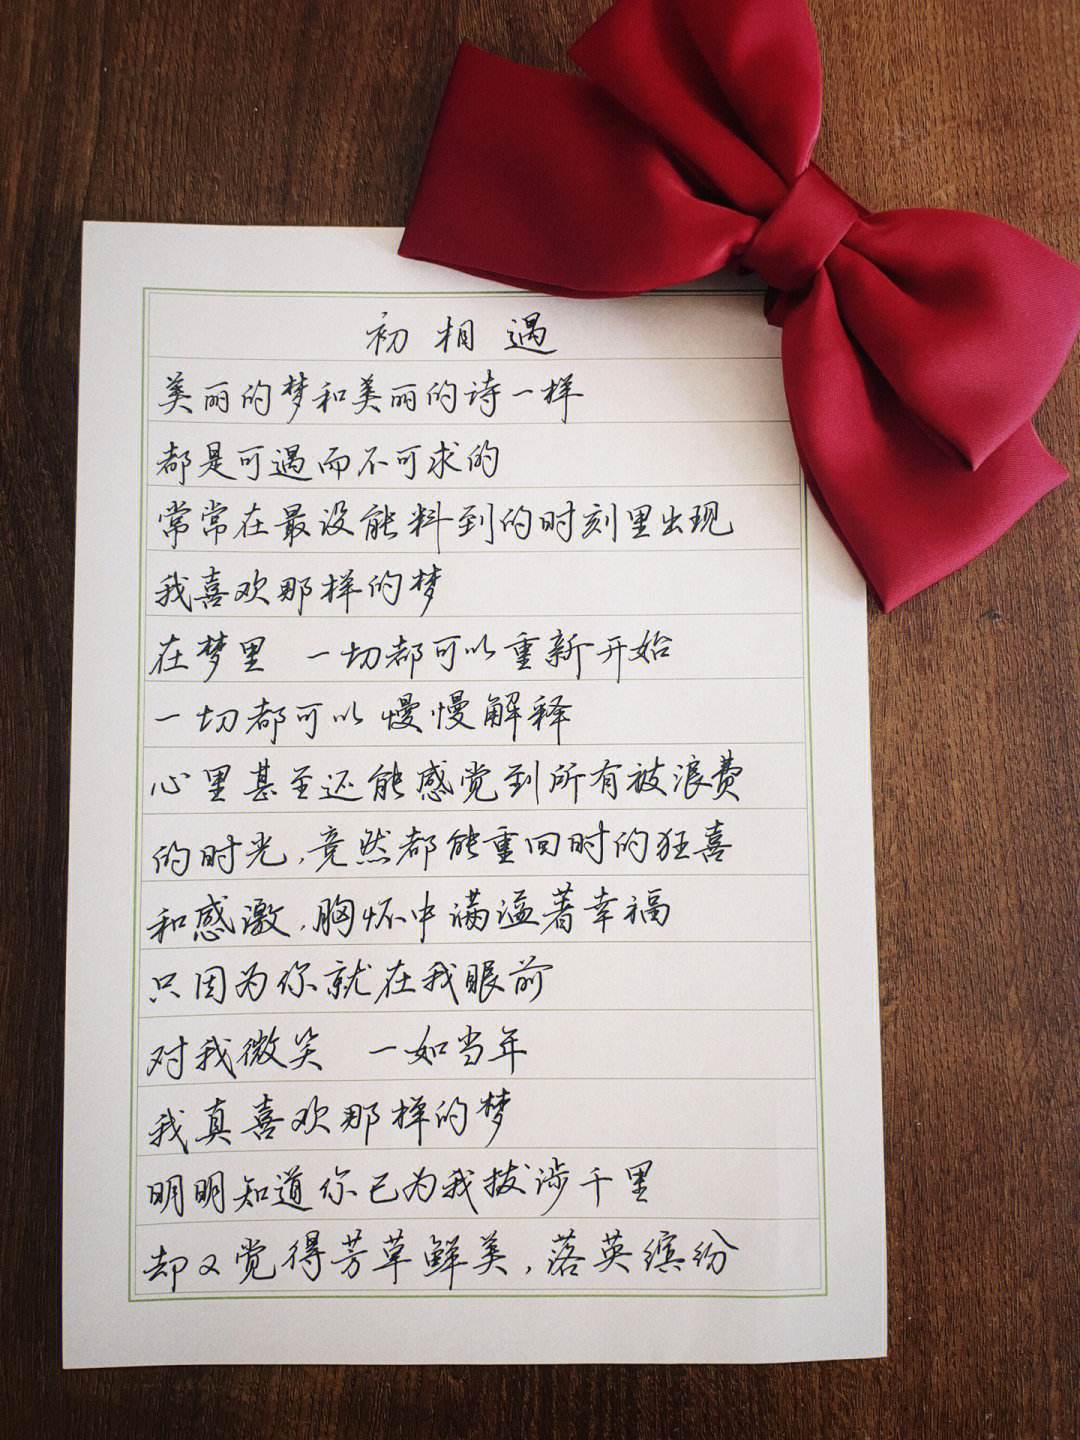 初相遇
美丽的梦和美丽的诗一样
都是可遇而不可求的
常常在最没能料到的时刻里出现
我喜欢那样的梦
在梦里 一切都可以重新开始
一切都可以慢慢解释
心里甚至还能感觉到所有被浪费
的时光,竟然都能重回时的狂喜
和感激,胸怀中满溢着幸福
只因为你就在我眼前
对我微笑 一如当年
我真喜欢那样的梦
明明知道你已为我拔涉千里
却又觉得芳草鲜美,落英缤纷